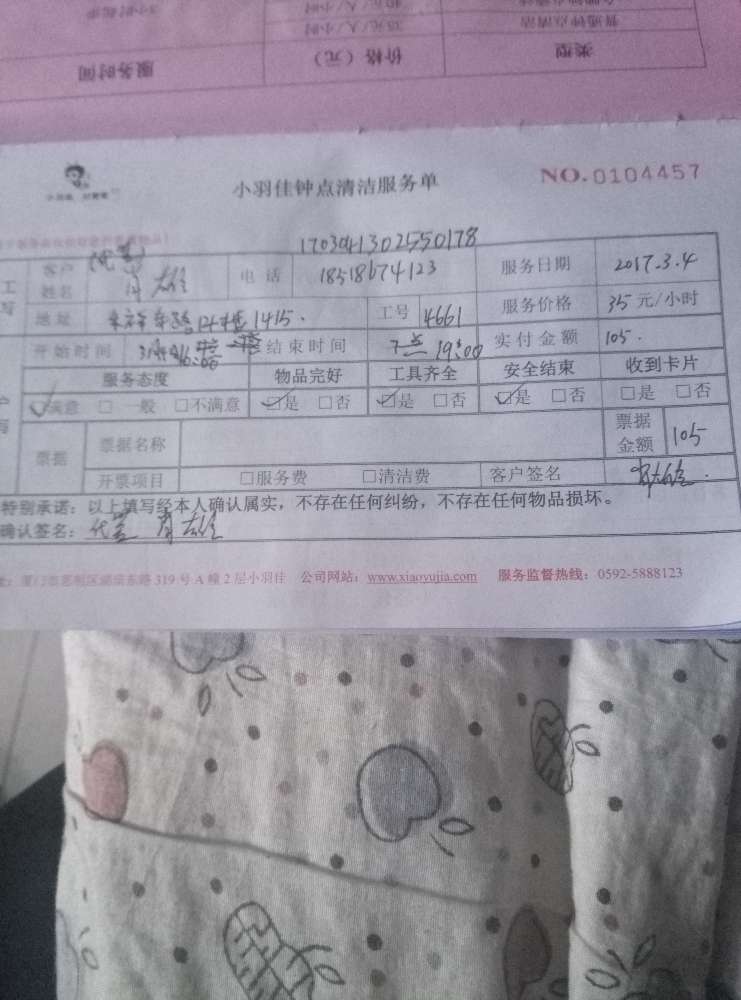 3小时起步 40元/人/小时
35元/人/小时 普通钟点清洁
服务时间 价格（元） 类型
小羽佳钟点清洁服务单 NO.0104457
170304130255 0178
客户姓名 (代签) 雄 电话 18518674123 服务日期 2017.3.4
地址 1415. 工号 4661 服务价格 35元/小时
开始时间 16:00 结束时间 7点 19:00 实付金额 105.
服务态度 物品完好 工具齐全 安全结束 收到卡片
☑满意 □一般 □不满意 ☑是 □否 ☑是 □否 ☑是 □否 □是 □否
票据 票据名称 票据金额 105
开票项目 □服务费 □清洁费 客户签名
特别承诺：以上填写经本人确认属实，不存在任何纠纷，不存在任何物品损坏。
确认签名：代签 雄
东路319号A幢2层小羽佳 公司网站：www.xiaoyujia.com 服务监督热线：0592-5888123